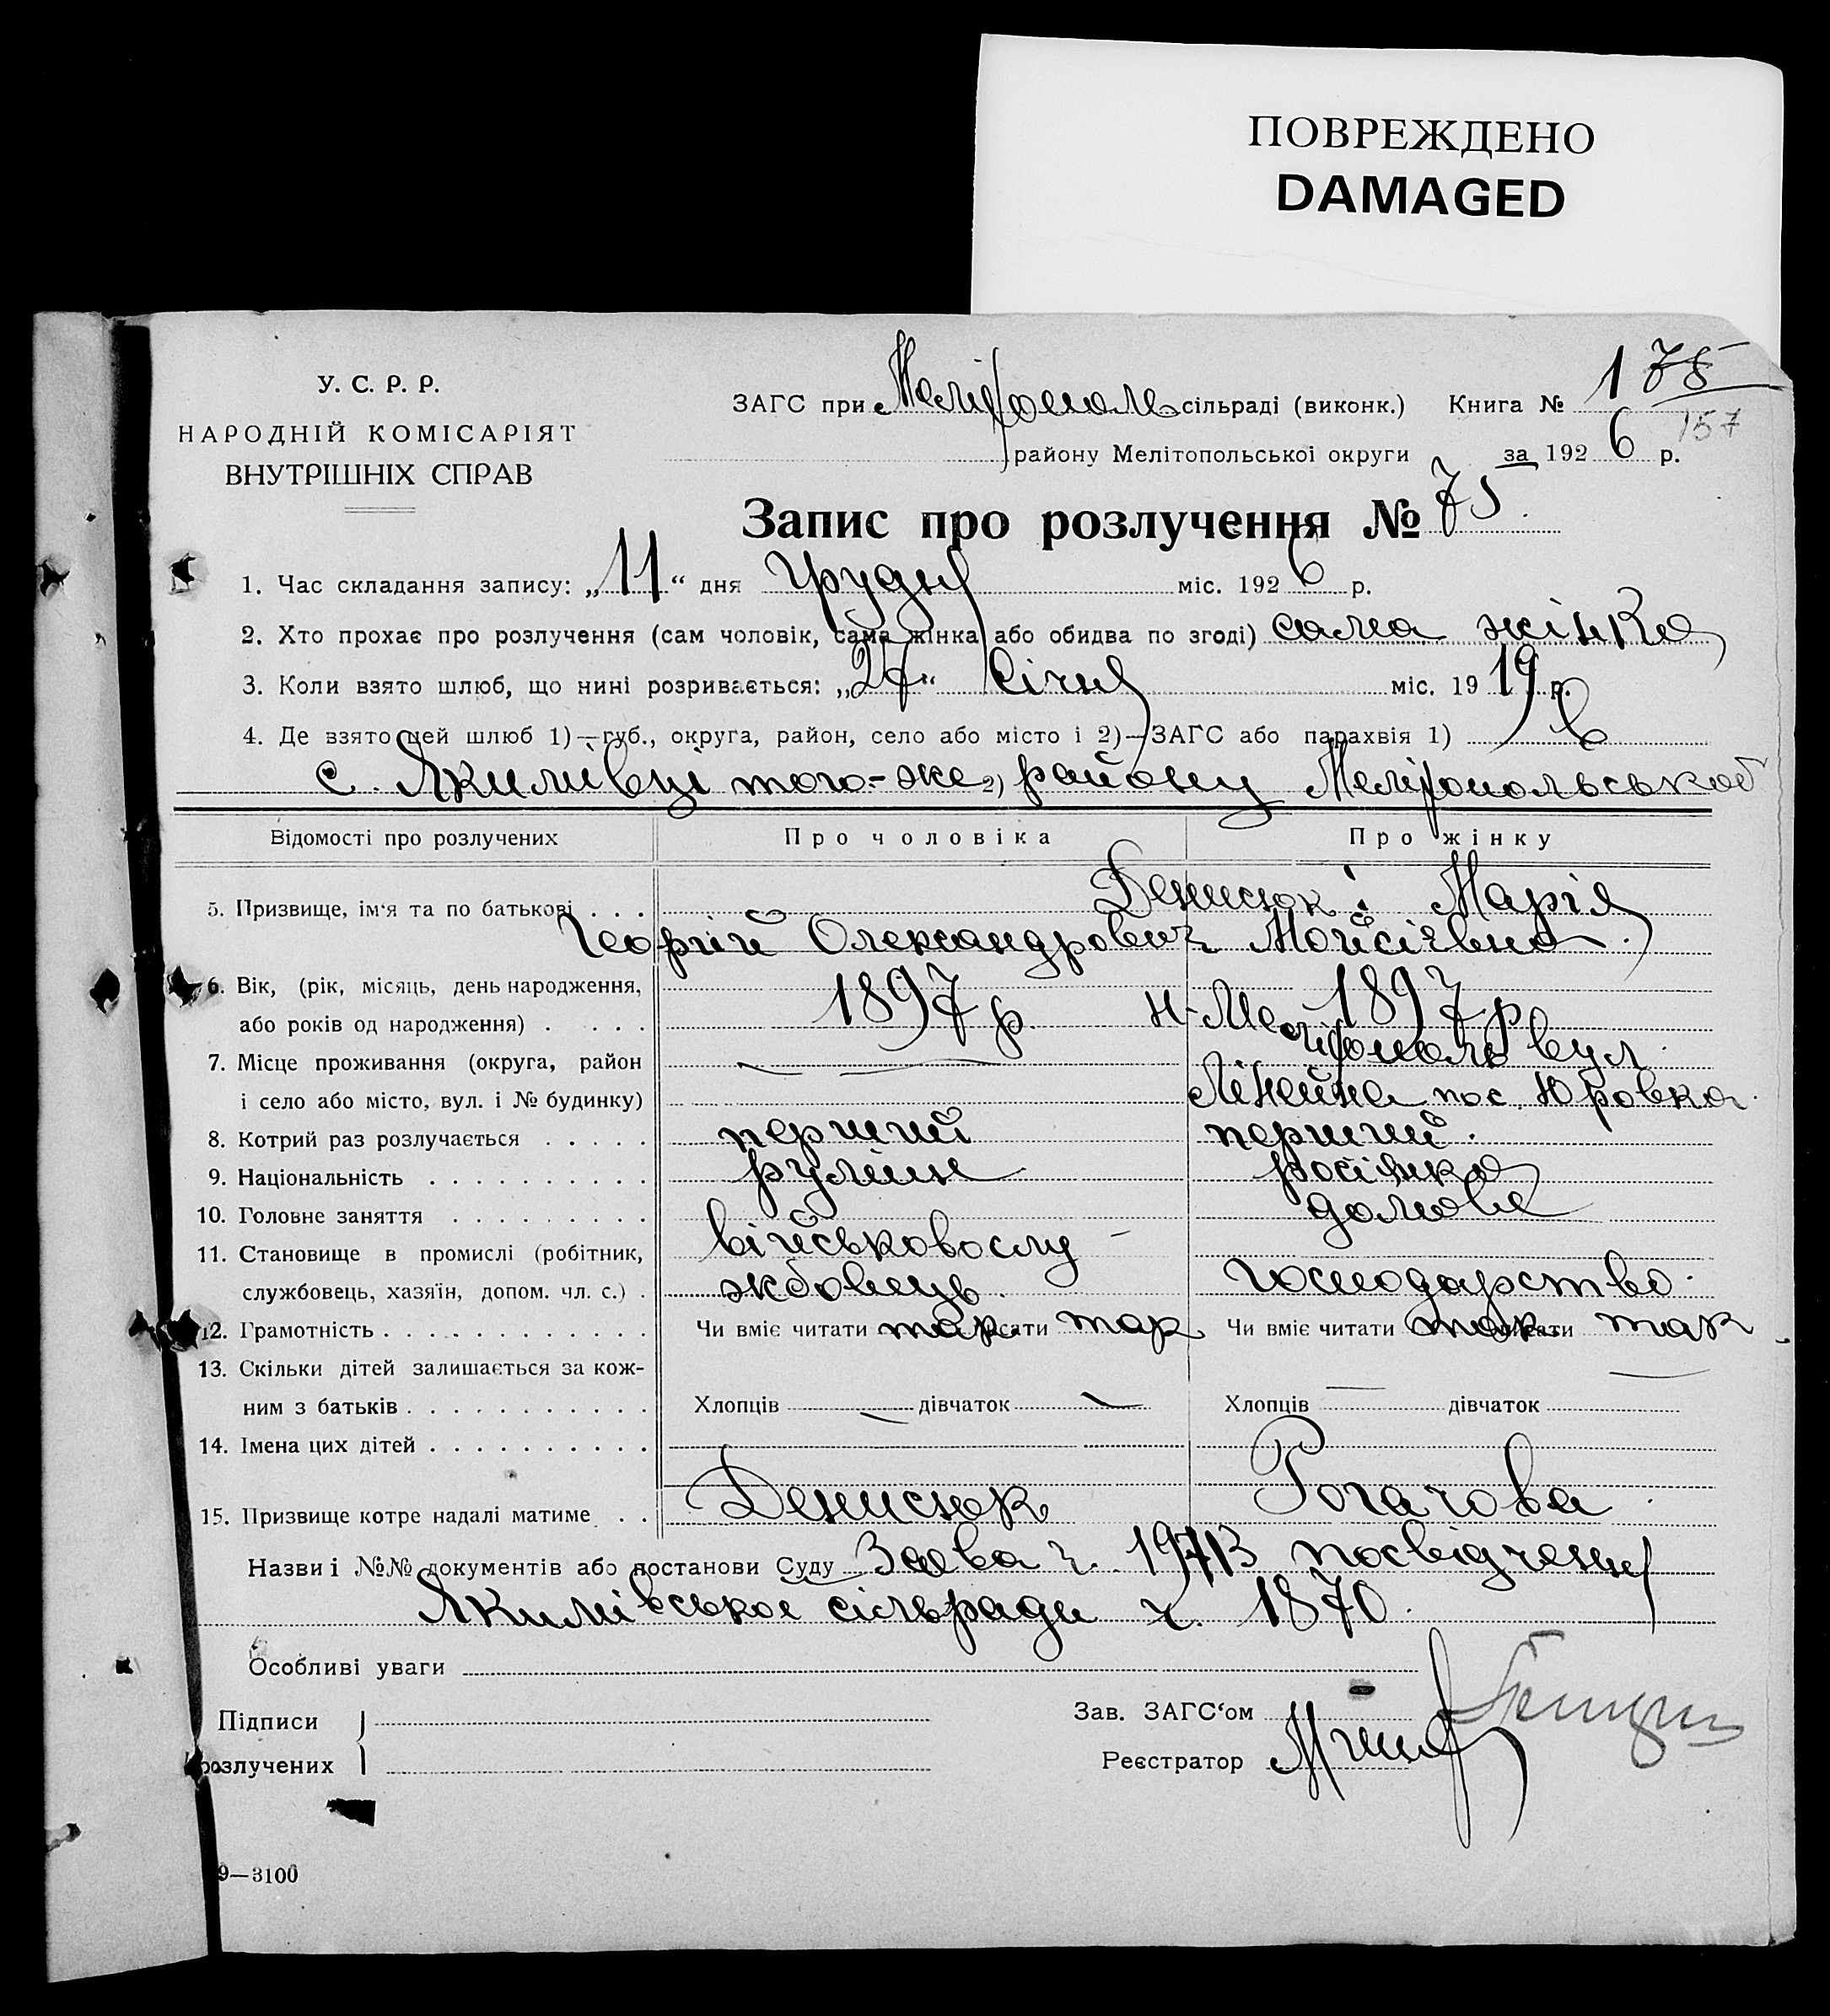 ПОВРЕЖДЕНО
DAMAGED
У. С. Р. Р.
НАРОДНІЙ КОМІСАРІЯТ
ВНУТРІШНІХ СПРАВ
ЗАГС при Мелітополь сільраді (виконк.) Книга № 1 78
157
району Мелітопольської округи за 1926 р.
Запис про розлучення № 75.
1. Час складання запису: „11“ дня Грудня міс. 1926 р.
2. Хто прохає про розлучення (сам чоловік, сама жінка або обидва по згоді) сама жінка
3. Коли взято шлюб, що нині розривається: „27“ Січня міс. 1919 р.
4. Де взято цей шлюб 1)—губ., округа, район, село або місто і 2)—ЗАГС або парахвія 1) в
с. Якимівці того-же 2) району Мелітопольської
Відомості про розлучених Про чоловіка Про жінку
5. Призвище, ім'я та по батькові . . . Денисюк: Марія
Георгій Олександрович Мойсіївна.
6. Вік, (рік, місяць, день народження,
або років од народження) . . . . . 1897 р. 1897 р.
7. Місце проживання (округа, район — м. Мелітополь вул.
і село або місто, вул. і № будинку) Лінейна пос. Юровка.
8. Котрий раз розлучається . . . . . перший перший.
9. Національність . . . . . . . . . . румін росіянка
10. Головне заняття . . . . . . . . . домове
11. Становище в промислі (робітник, військовослу-
службовець, хазяїн, допом. чл. с.) . жбовець. господарство.
12. Грамотність . . . . . . . . . . . . Чи вміє читати так писати так Чи вміє читати так писати так
13. Скільки дітей залишається за кож-
ним з батьків . . . . . . . . . . . Хлопців — дівчаток — Хлопців — дівчаток —
14. Імена цих дітей . . . . . . . . . .
15. Призвище котре надалі матиме . . Денисюк Рогачова.
Назви і №№ документів або постанови Суду Заява ч. 19713 посвідчення
Якимівської сільради ч. 1870.
Особливі уваги
Підписи
розлучених
Зав. ЗАГС‘ом
Реєстратор
9—3100